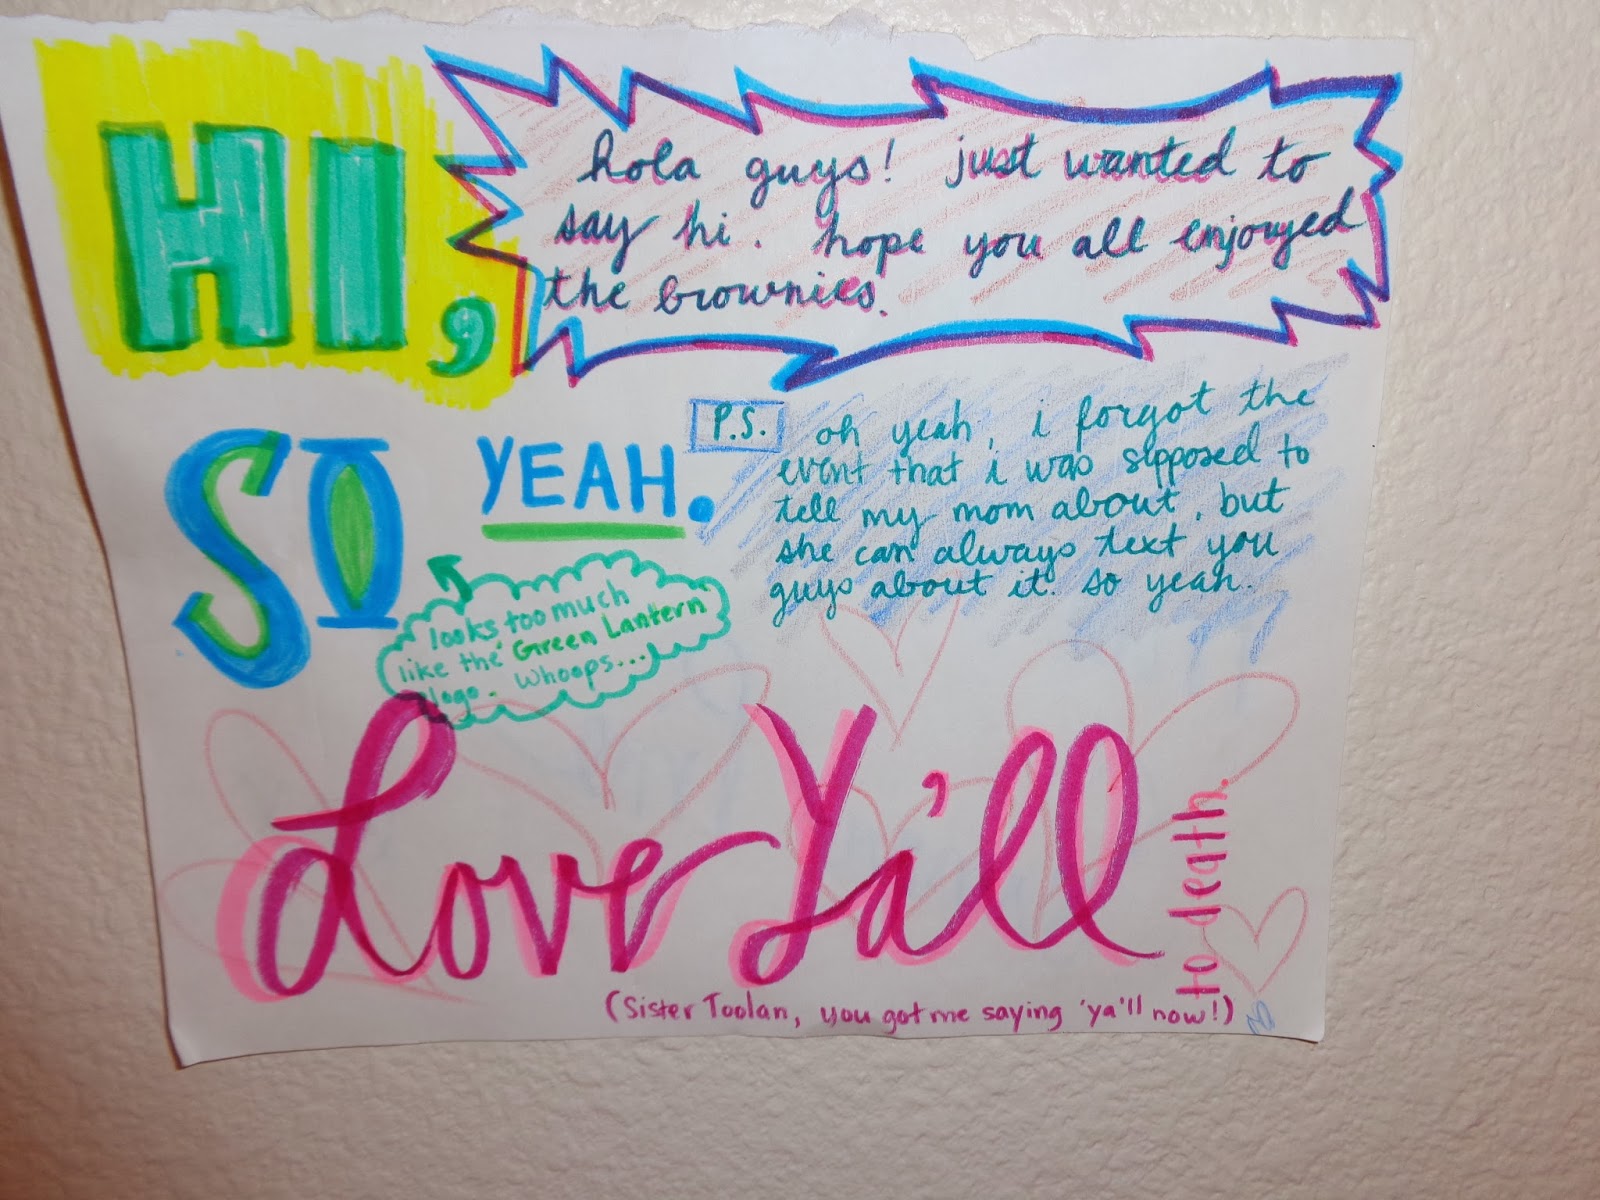 HI,
hola guys! just wanted to
say hi. hope you all enjoyed
the brownies.
SO YEAH.
looks too much
like the Green Lantern
logo. Whoops...
P.S. oh yeah, i forgot the
event that i was supposed to
tell my mom about, but
she can always text you
guys about it. so yeah.
Love Ya'll
to death.
(Sister Toolan, you got me saying 'ya'll now!)